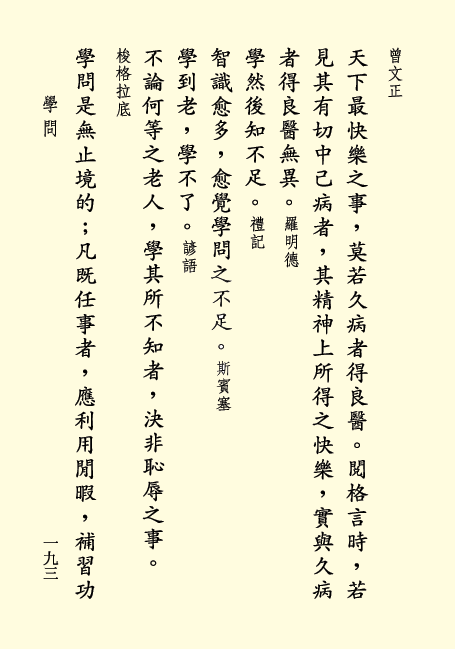 曾文正
天下最快樂之事，莫若久病者得良醫。閱格言時，若
見其有切中己病者，其精神上所得之快樂，實與久病
者得良醫無異。羅明德
學然後知不足。禮記
智識愈多，愈覺學問之不足。斯賓塞
學到老，學不了。諺語
不論何等之老人，學其所不知者，決非恥辱之事。
梭格拉底
學問是無止境的；凡既任事者，應利用閒暇，補習功
學問
一九三